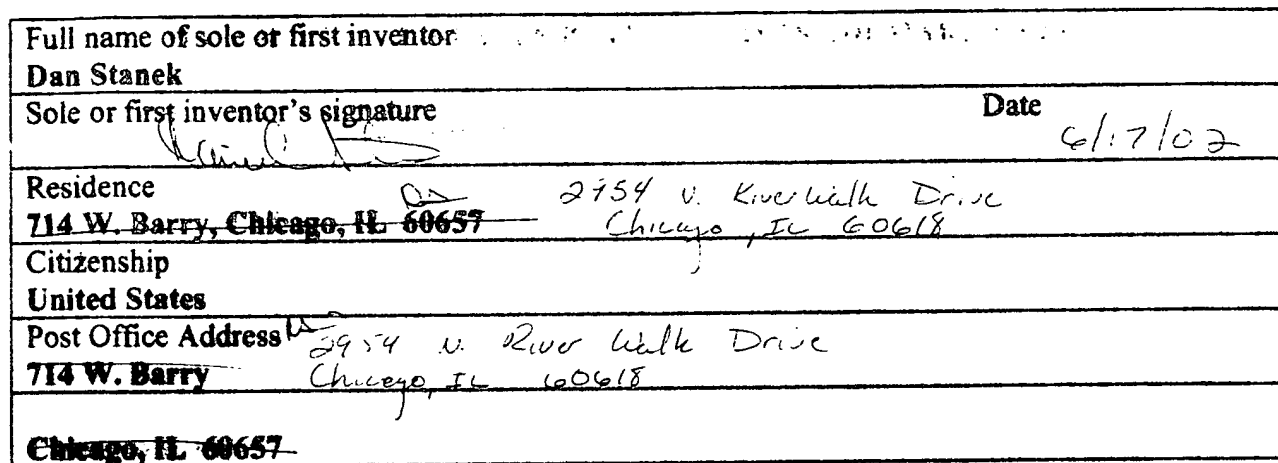 Full name of sole or first inventor
Dan Stanek
Sole or first inventor's signature Date
6/17/02
Residence 2954 N. River Walk Drive
714 W. Barry, Chicago, IL 60657 Chicago, IL 60618
Citizenship
United States
Post Office Address 2954 N. River Walk Drive
714 W. Barry Chicago, IL 60618
Chicago, IL 60657